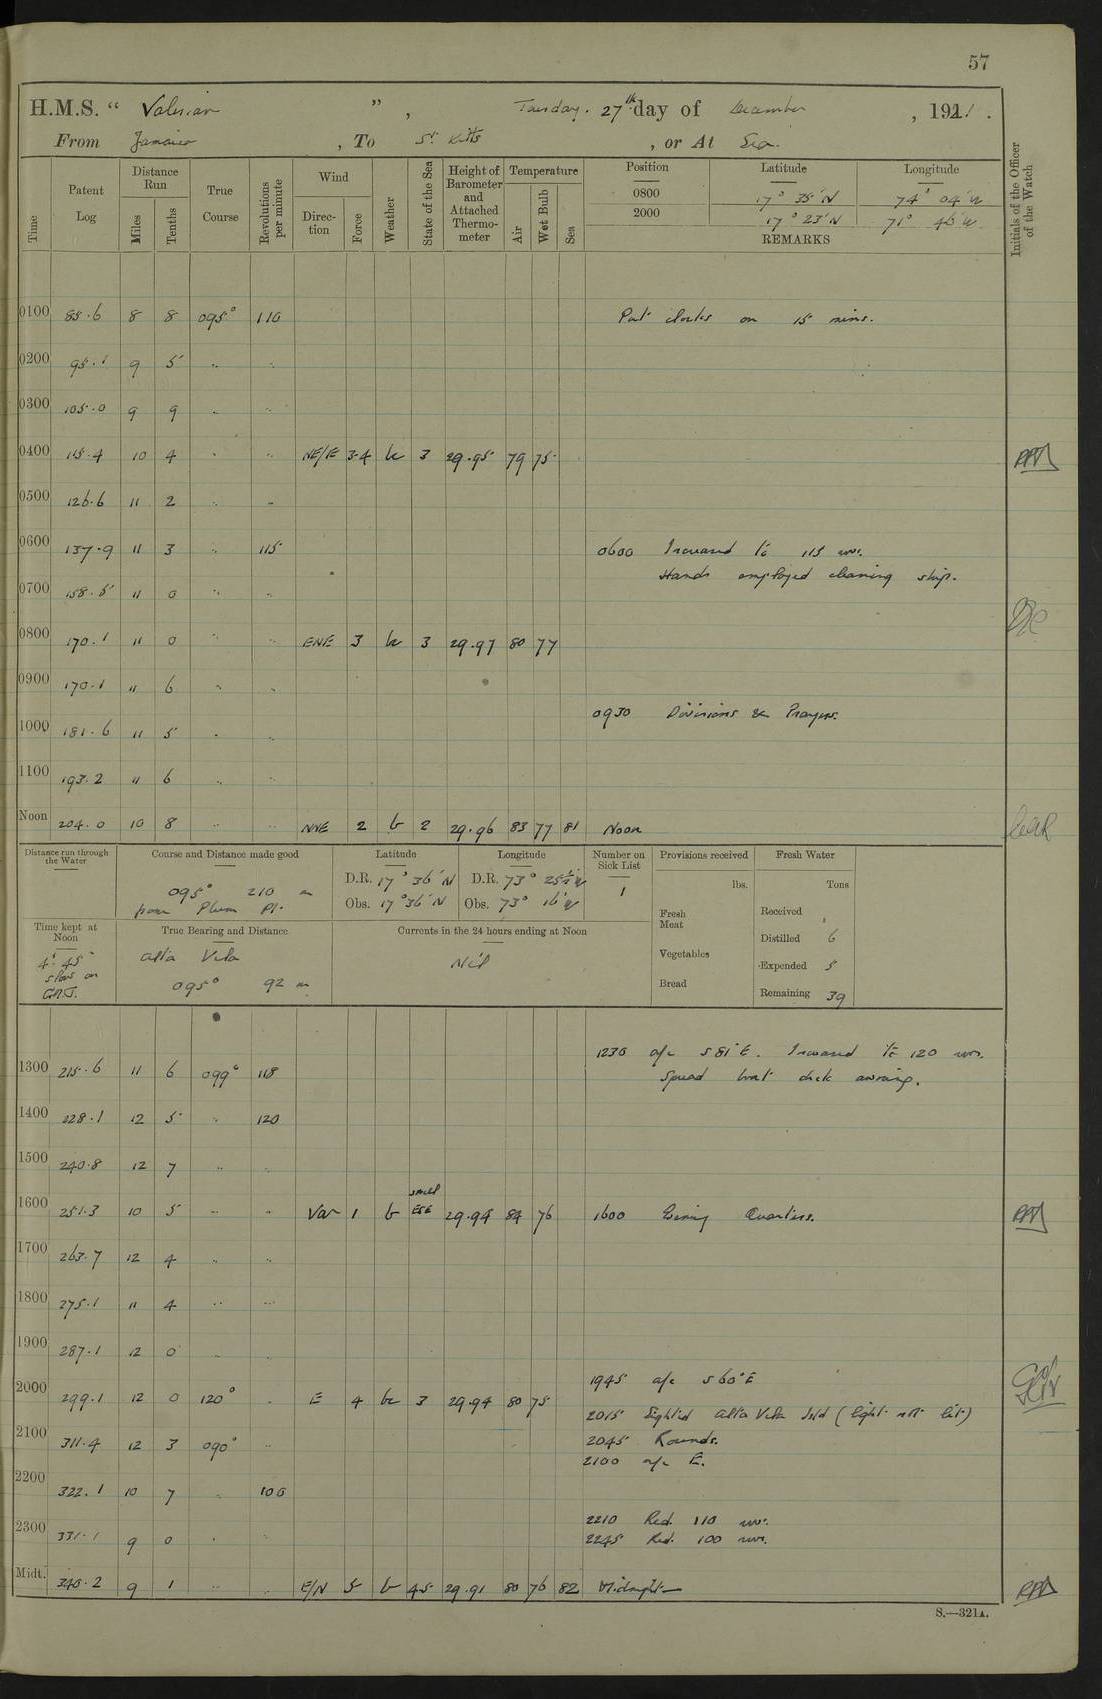 57
H.M.S. “ Valerian ” , Tuesday. 27th day of December , 1921 .
From Jamaica , To St Kitts , or At Sea.
Time Patent Log Distance Run Miles Tenths True Course Revolutions per minute Wind Direction Force Weather State of the Sea Height of Barometer and Attached Thermometer Temperature Air Wet Bulb Sea Position Latitude Longitude Initials of the Officer of the Watch
0800 17° 35′ N 74° 04′ W
2000 17° 23′ N 71° 46′ W
REMARKS
0100 85.6 8 8 095° 110 Put clocks on 15 mins.
0200 95.1 9 5 .. ..
0300 105.0 9 9 .. ..
0400 115.4 10 4 .. .. NE/E 3.4 bc 3 29.95 79 75
0500 126.6 11 2 .. ..
0600 137.9 11 3 .. 115 0600 Increased to 115 revs.
Hands employed cleaning ship.
0700 158.5 " 0 .. ..
0800 170.1 " 0 .. .. ENE 3 bc 3 29.97 80 77
0900 170.1 " 6 .. ..
0930 Divisions & Prayers.
1000 181.6 " 5 .. ..
1100 193.2 " 6 .. ..
Noon 204.0 10 8 .. .. NNE 2 b 2 29.96 83 77 81 Noon
Distance run through the Water Course and Distance made good Latitude Longitude Number on Sick List Provisions received Fresh Water
095° 210 m D.R. 17° 36′ N D.R. 73° 25½′ W 1 lbs. Tons
from Plum Pt. Obs. 17° 36′ N Obs. 73° 16′ W Fresh Meat Received
Time kept at Noon True Bearing and Distance Currents in the 24 hours ending at Noon Distilled 6
4h 45m slow on G.M.T. Alta Vela Nil Vegetables Expended 5
095° 92 m Bread Remaining 39
1230 a/c S 81° E. Increased to 120 revs.
1300 215.6 11 6 099° 118 Spread boat deck awning.
1400 228.1 12 5 .. 120
1500 240.8 12 7 .. ..
1600 251.3 10 5 .. .. Var 1 b swell ESE 29.94 84 76 1600 Evening Quarters.
1700 263.7 12 4 .. ..
1800 275.1 " 4 .. ..
1900 287.1 12 0 .. ..
1945 a/c S 60° E
2000 299.1 12 0 120° .. E 4 bc 3 29.94 80 75
2015 Sighted Alta Vela Isld (light not lit)
2100 311.4 12 3 090° .. 2045 Rounds.
2100 a/c E.
2200 322.1 10 7 .. 100
2210 Red. 110 revs.
2300 331.1 9 0 .. .. 2245 Red. 100 revs.
Midt. 340.2 9 1 .. .. E/N 5 b 45 29.91 80 76 82 Midnight
S.—321A.